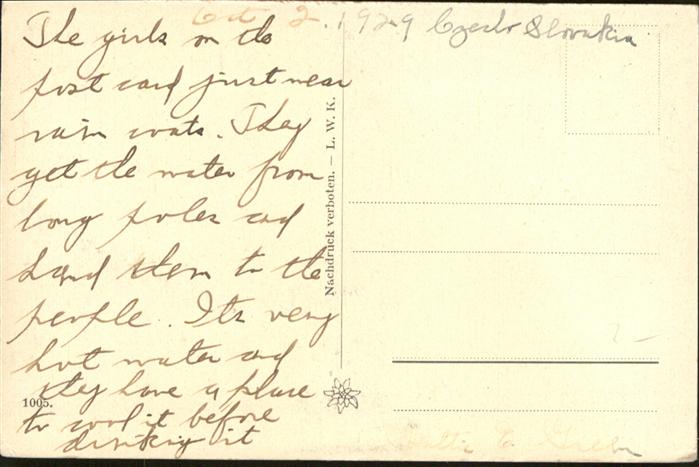 Oct 2. 1929 Czecho Slovakia
The girls on the
post card just wear
rain coats. They
get the water from
long poles and
hand them to the
people. Its very
hot water and
they have a place
to cool it before
drinking it
1005.
Nachdruck verboten. — L. W. K.